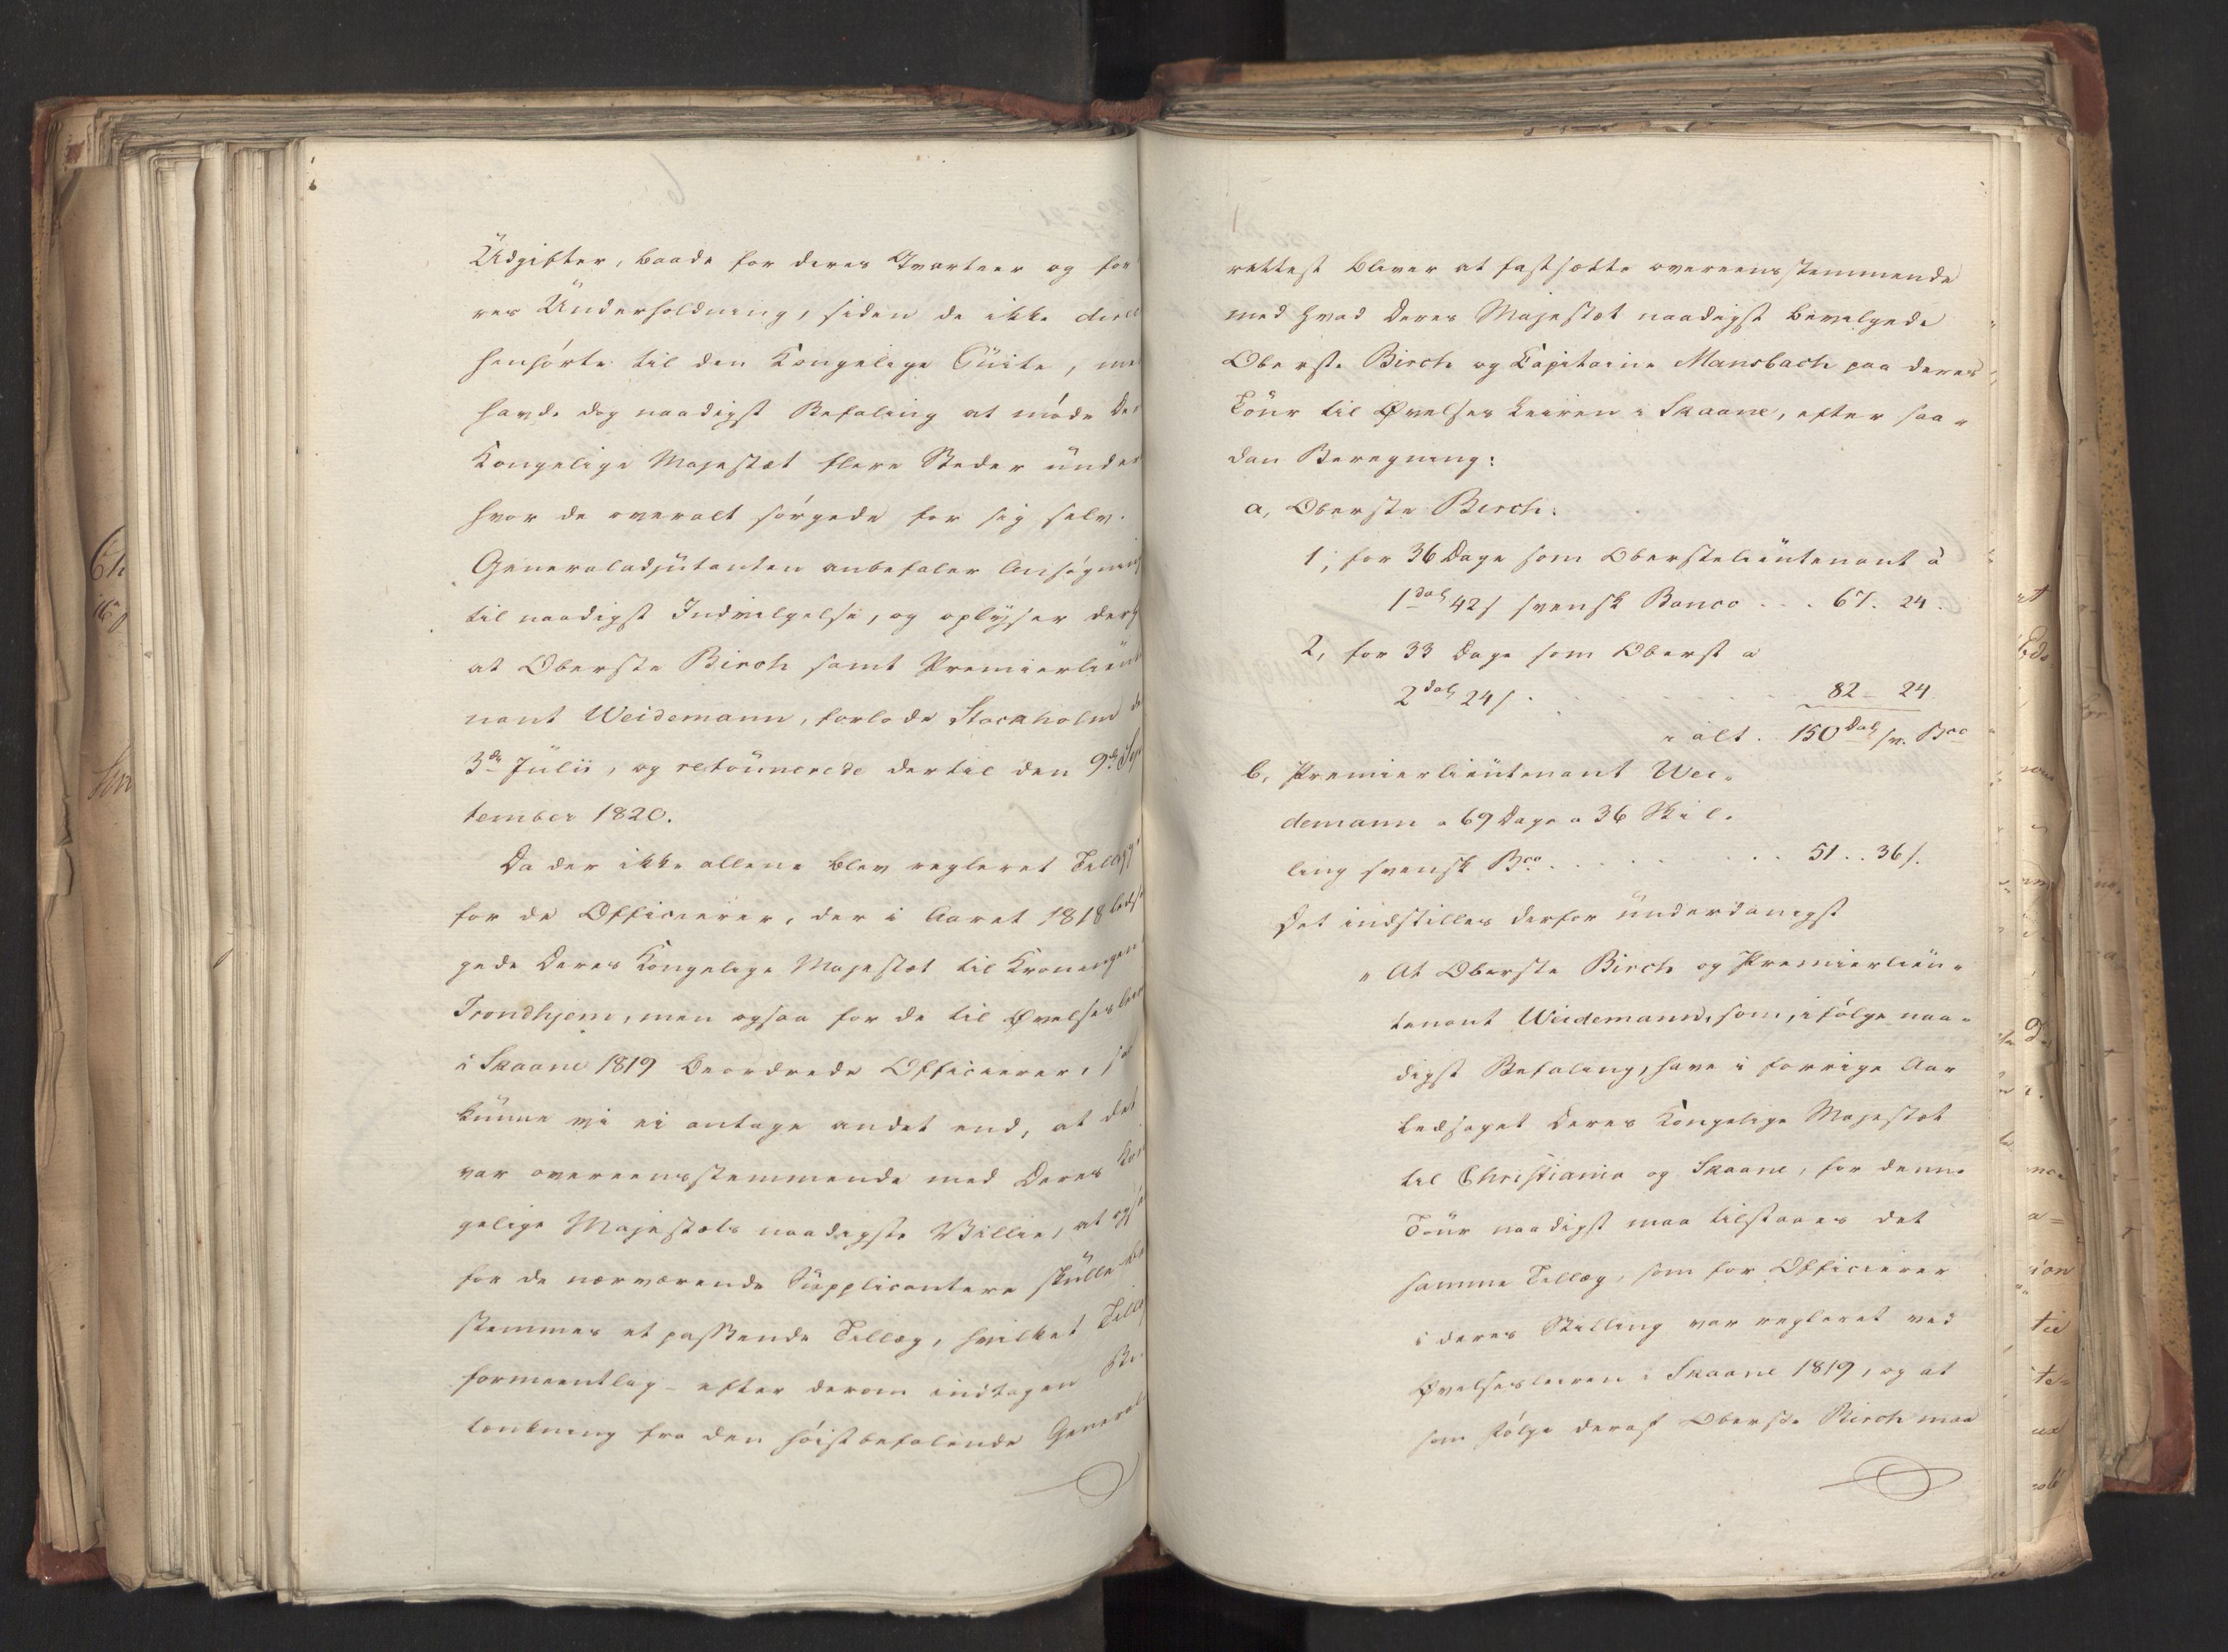 Udgifter, baade for deres Qvarteer og for
res Underholdning, siden de ikke
henhørte til den Kongelige Suite, me
havde dog naadigst Befaling at møde De
Kongelige Majestæt flere Steder under
hvor de overalt sørgede for sig selv.
Generaladjutanten anbefaler Ansøgning
til naadigst Indvilgelse, og oplyser
at Oberste Birch samt Premierlieut
nant Weidemann, forlode Stockholm d
3de Julii, og retournerede dertil den 9de Sep
tember 1820.
Da der ikke allene blev regleret Tillæg
for de Officierer, der i Aaret 1818 leds
gede Deres Kongelige Majestæt til Kroningen
Trondhjem, men ogsaa for de til Øvelses
i Skaane 1819 beordrede Officierer, saa
kunne vi ei antage andet end, at det
var overeensstemmende med Deres Kon
gelige Majestæts naadigste Villie, at ogsaa
for de nærværende Supplicantere skulle be
stemmes et passende Tillæg, hvilket Tillæg
formeentlig - efter derom indtagen Be
tænkning fra den høistbefalende General
rettest bliver at fastsætte overeensstemmende
med hvad Deres Majestæt naadigst bevilgede
Oberste Birch og Capitaine Mansbach paa deres
Tour til Øvelses Leiren i Skaane, efter saa-
dan Beregning:
a, Oberste Birch.
1, for 36 Dage som Oberstelieutenant à
1 dal 42 s svensk Banco . . . 67. 24.
2, for 33 Dage som Oberst a
2 dal 24 s . . . . . . . 82 - 24
i alt . 150 Dal sv. Bco
b, Premierlieutenant Wei-
demann a 69 Dage a 36 Skil-
ling svensk Bco . . . . . . . 51 . . 36 s.
Det indstilles derfor underdanigst
" At Oberste Birch og Premierlieu-
tenant Weidemann, som, ifølge naa-
digst Befaling, have i forrige Aar
ledsaget Deres Kongelige Majestæt
til Christiania og Skaane, for denne
Tour naadigst maa tilstaaes det
samme Tillæg, som for Officierer
i deres Stilling var regleret ved
Øvelsesleiren i Skaane 1819, og at
som Følge deraf Oberste Birch maa